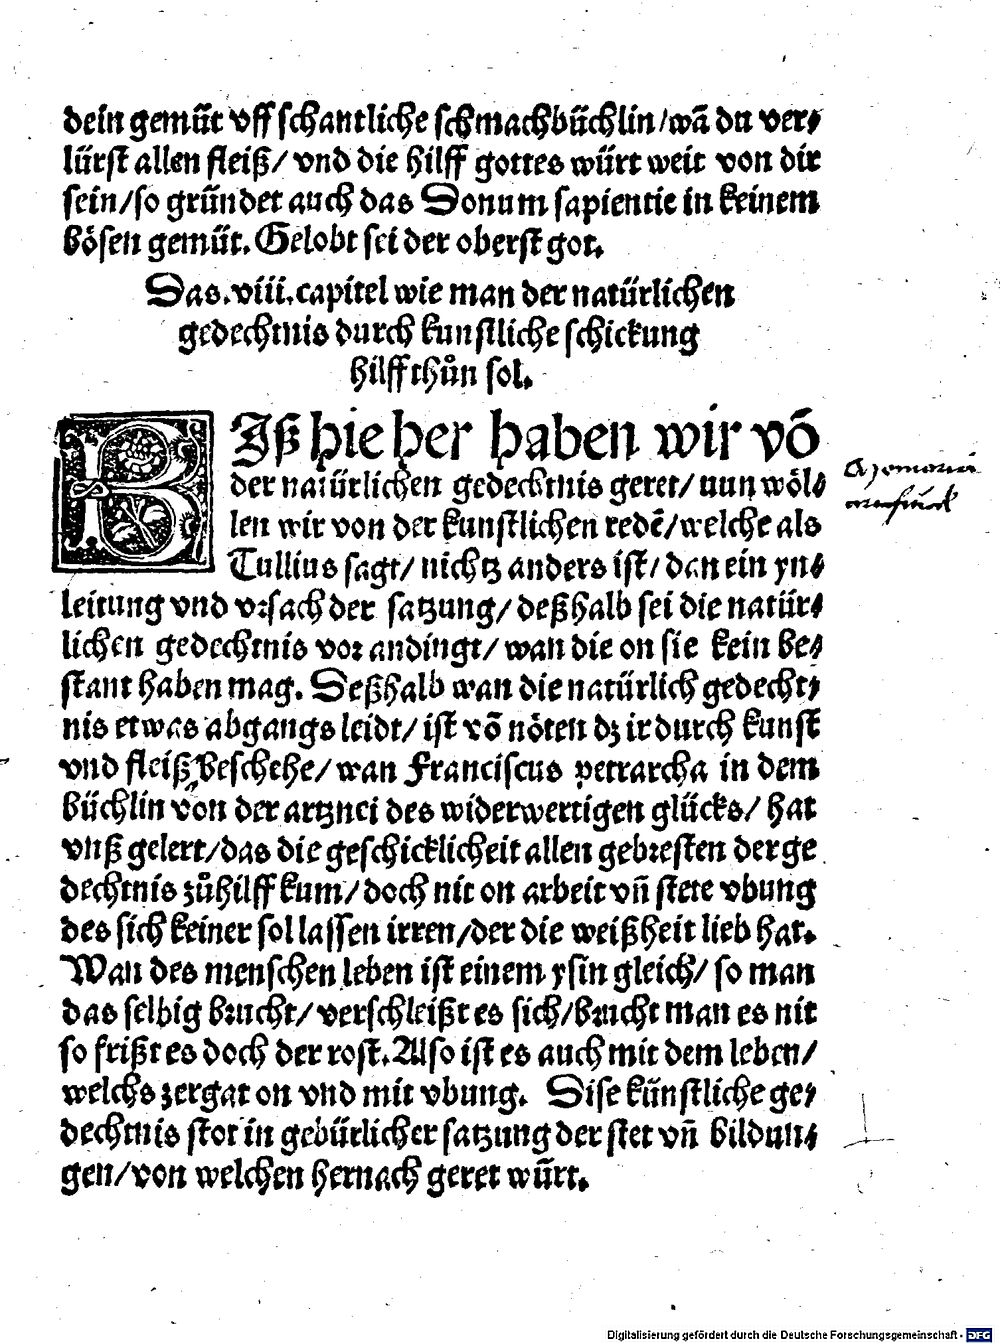 dein gemüt vff schantliche schmachbüchlin/wã du ver⸗
lürst allen fleiß/ vnd die hilff gottes würt weit von dir
sein/so gründet auch das Donum sapientie in keinem
bösen gemüt. Gelobt sei der oberst got.
Das .viii. capitel wie man der natürlichen
gedechtnis durch kunstliche schickung
hilff thůn sol.
BIß hie her haben wir võ
der natürlichen gedechtnis geret/ nun wöl⸗
len wir von der kunstlichen redẽ/welche als
Tullius sagt/ nichtz anders ist/ dan ein yn⸗
leitung vnd vrsach der satzung/ deßhalb sei die natür⸗
lichen gedechtnis vor andingt/ wan die on sie kein be⸗
stant haben mag. Deßhalb wan die natürlich gedecht⸗
nis etwas abgangs leidt/ ist võ nöten dz ir durch kunst
vnd fleiß beschehe/ wan Franciscus petrarcha in dem
büchlin von der artznei des widerwertigen glücks/ hat
vnß gelert/das die geschicklicheit allen gebresten der ge
dechtnis zůhilff kum/ doch nit on arbeit vñ stete vbung
des sich keiner sol lassen irren/der die weißheit lieb hat.
Wan des menschen leben ist einem ysin gleich/ so man
das selbig brucht/ verschleißt es sich/brucht man es nit
so frißt es doch der rost. Also ist es auch mit dem leben/
welchs zergat on vnd mit vbung. Dise künstliche ge⸗
dechtnis stot in gebürlicher satzung der stet vñ bildun⸗
gen/von welchen hernach geret würt.
Digitalisierung gefördert durch die Deutsche Forschungsgemeinschaft - DFG